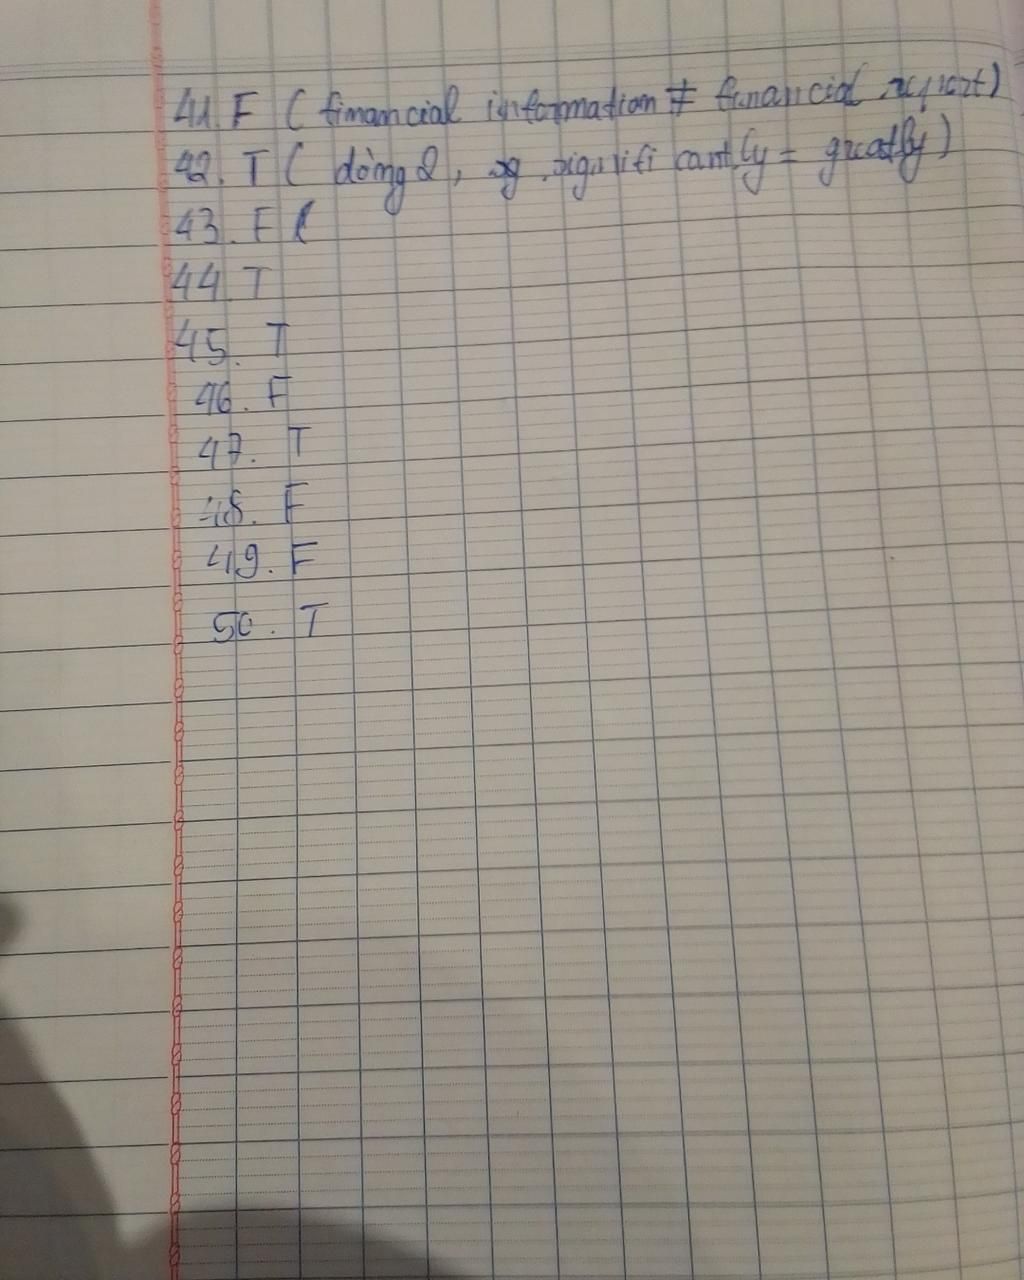 41. F ( financial information ≠ financial report)
42. T ( dòng 2, significantly = greatly)
43. F (
44. T
45. T
46. F
47. T
48. F
49. F
50. T